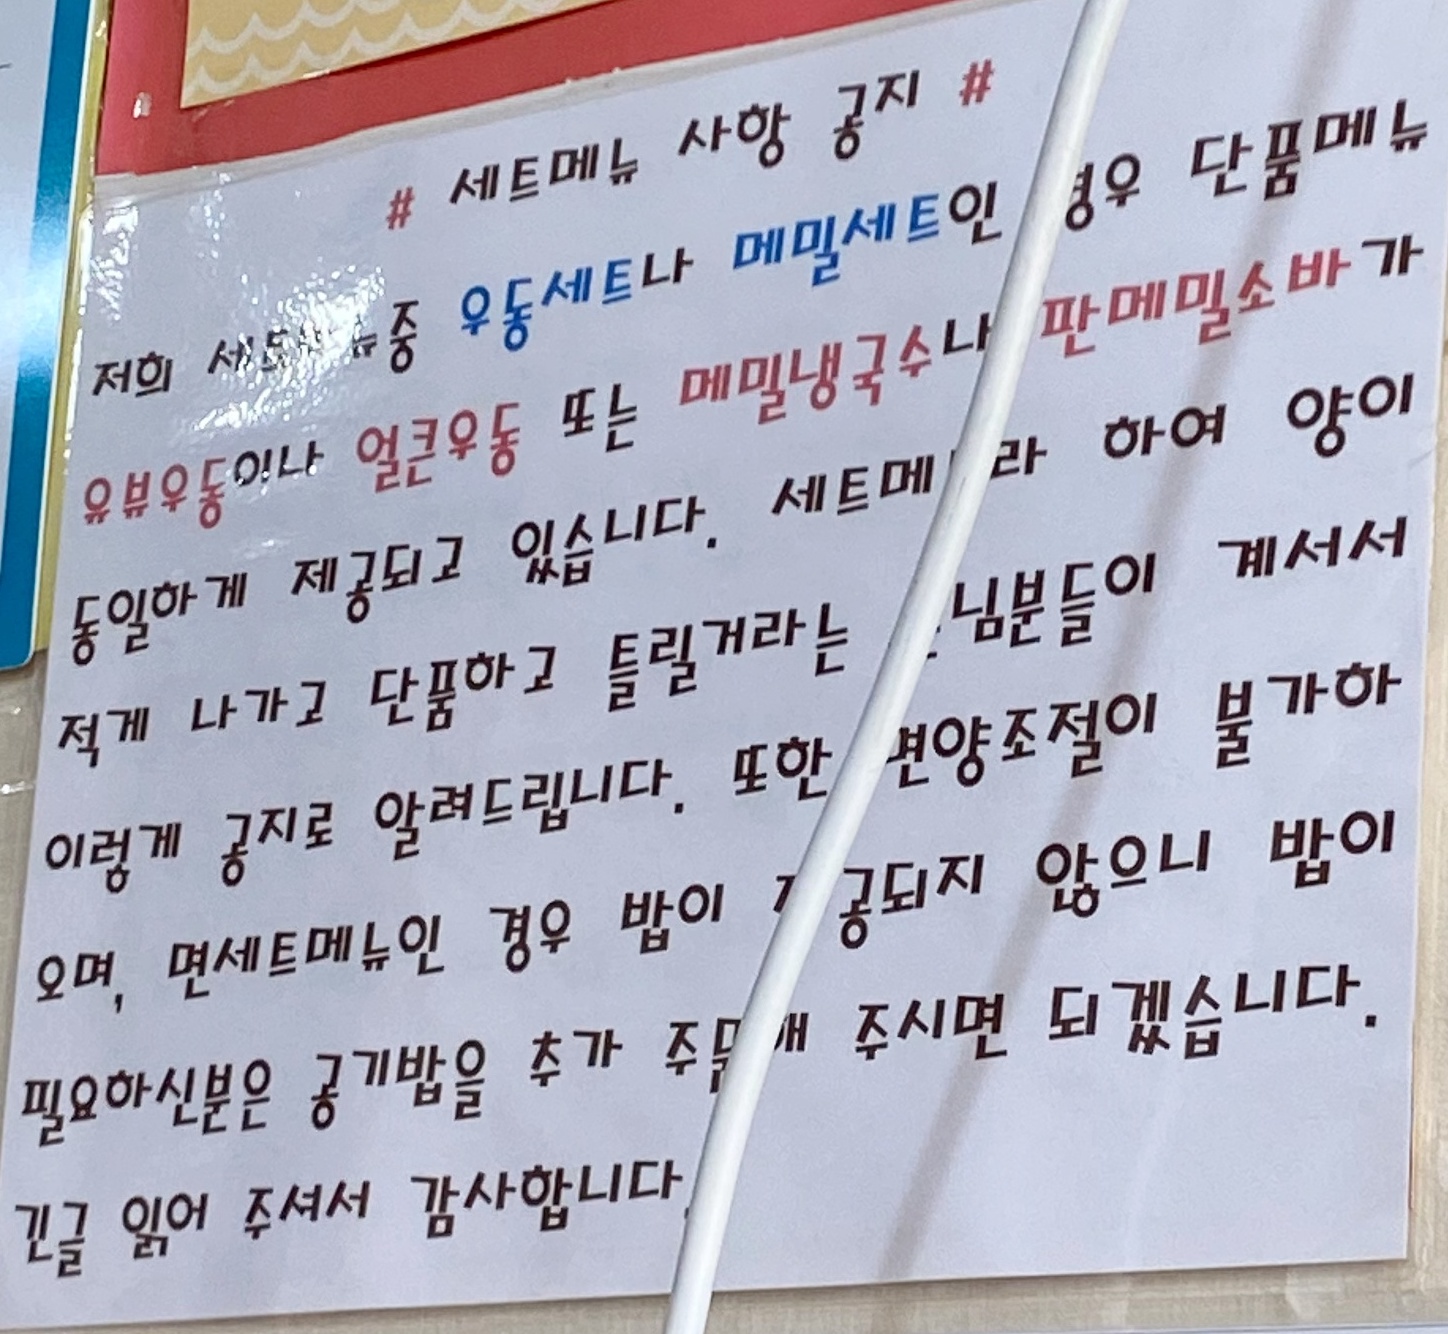 # 세트메뉴 사항 공지 #
저희 중 우동세트나 메밀세트인 경우 단품메뉴
유뷰우동이나 얼큰우동 또는 메밀냉국수나 판메밀소바가
동일하게 제공되고 있습니다. 세트메 라 하여 양이
적게 나가고 단품하고 틀릴거라는 님분들이 계서서
이렇게 공지로 알려드립니다. 또한 면양조절이 불가하
오며, 면세트메뉴인 경우 밥이 제공되지 않으니 밥이
필요하신분은 공기밥을 추가 주문해 주시면 되겠습니다.
긴글 읽어 주셔서 감사합니다.